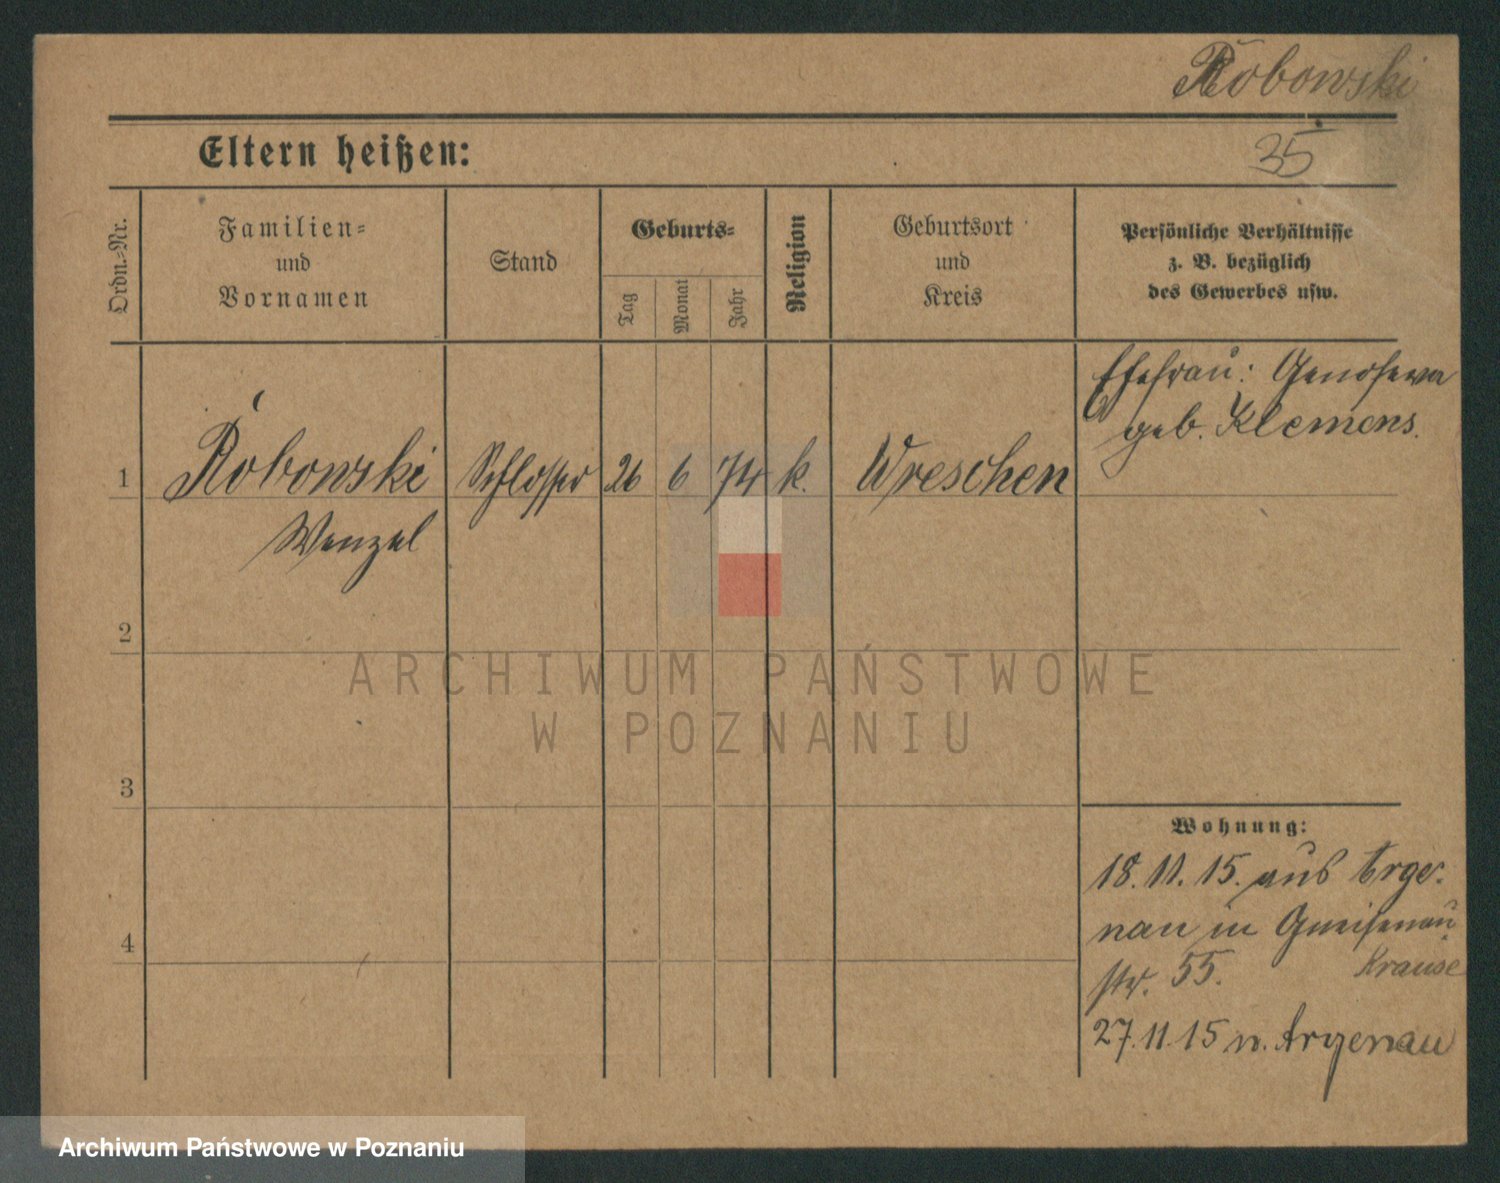 Robowski
35
Eltern heißen:
Ordn.-Nr.
Familien-
und
Vornamen
Stand
Geburts-
Tag
Monat
Jahr
Religion
Geburtsort
und
Kreis
Persönliche Verhältnisse
z. B. bezüglich
des Gewerbes usw.
Ehefrau: Genofewa
geb. Klemens.
1
Robowski
Schlosser
26
6
74
k.
Wreschen
Wenzel
2
ARCHIWUM PAŃSTWOWE
W POZNANIU
3
4
Wohnung:
18. 11. 15. aus Arge-
nau in Gneisenau
str. 55.
Krause
27. 11. 15 n. Argenau
Archiwum Państwowe w Poznaniu